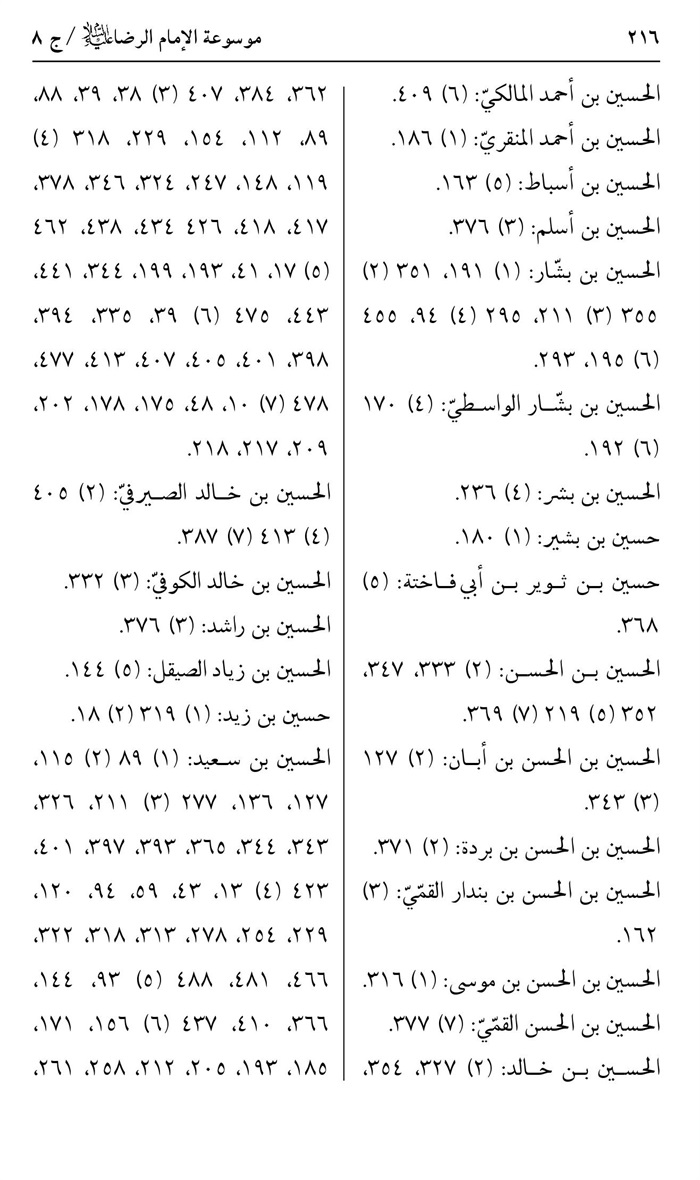 ٢١٦
موسوعة الإمام الرضا عليه السلام / ج ٨
الحسين بن أحمد المالكيّ: (٦) ٤٠٩.
الحسين بن أحمد المنقريّ: (١) ١٨٦.
الحسين بن أسباط: (٥) ١٦٣.
الحسين بن أسلم: (٣) ٣٧٦.
الحسين بن بشّار: (١) ١٩١، ٣٥١ (٢)
٣٥٥ (٣) ٢١١، ٢٩٥ (٤) ٩٤، ٤٥٥
(٦) ١٩٥، ٢٩٣.
الحسين بن بشّـار الواسطيّ: (٤) ١٧٠
(٦) ١٩٢.
الحسين بن بشر: (٤) ٢٣٦.
حسين بن بشير: (١) ١٨٠.
حسين بـن ثـوير بـن أبي فـاختة: (٥)
٣٦٨.
الحسين بـن الحسـن: (٢) ٣٣٣، ٣٤٧،
٣٥٢ (٥) ٢١٩ (٧) ٣٦٩.
الحسين بن الحسن بن أبـان: (٢) ١٢٧
(٣) ٣٤٣.
الحسين بن الحسن بن بردة: (٢) ٣٧١.
الحسين بن الحسن بن بندار القمّيّ: (٣)
١٦٢.
الحسين بن الحسن بن موسى: (١) ٣١٦.
الحسين بن الحسن القمّيّ: (٧) ٣٧٧.
الحسـين بـن خـالد: (٢) ٣٢٧، ٣٥٤،
٣٦٢، ٣٨٤، ٤٠٧ (٣) ٣٨، ٣٩، ٨٨،
٨٩، ١١٢، ١٥٤، ٢٢٩، ٣١٨ (٤)
١١٩، ١٤٨، ٢٤٧، ٣٢٤، ٣٤٦، ٣٧٨،
٤١٧، ٤١٨، ٤٢٦ ٤٣٤، ٤٣٨، ٤٦٢
(٥) ١٧، ٤١، ١٩٣، ١٩٩، ٣٤٤، ٤٤١،
٤٤٣، ٤٧٥ (٦) ٣٩، ٣٣٥، ٣٩٤،
٣٩٨، ٤٠١، ٤٠٥، ٤٠٧، ٤١٣، ٤٧٧،
٤٧٨ (٧) ١٠، ٤٨، ١٧٥، ١٧٨، ٢٠٢،
٢٠٩، ٢١٧، ٢١٨.
الحسين بن خـالد الصـيرفيّ: (٢) ٤٠٥
(٤) ٤١٣ (٧) ٣٨٧.
الحسين بن خالد الكوفيّ: (٣) ٣٣٢.
الحسين بن راشد: (٣) ٣٧٦.
الحسين بن زياد الصيقل: (٥) ١٤٤.
حسين بن زيد: (١) ٣١٩ (٢) ١٨.
الحسين بن سـعيد: (١) ٨٩ (٢) ١١٥،
١٢٧، ١٣٦، ٢٧٧ (٣) ٢١١، ٣٢٦،
٣٤٣، ٣٤٤، ٣٦٥، ٣٩٣، ٣٩٧، ٤٠١،
٤٢٣ (٤) ١٣، ٤٣، ٥٩، ٩٤، ١٢٠،
٢٢٩، ٢٥٤، ٢٧٨، ٣١٣، ٣١٨، ٣٢٢،
٤٦٦، ٤٨١، ٤٨٨ (٥) ٩٣، ١٤٤،
٣٦٦، ٤١٠، ٤٣٧ (٦) ١٥٦، ١٧١،
١٨٥، ١٩٣، ٢٠٥، ٢١٢، ٢٥٨، ٢٦١،